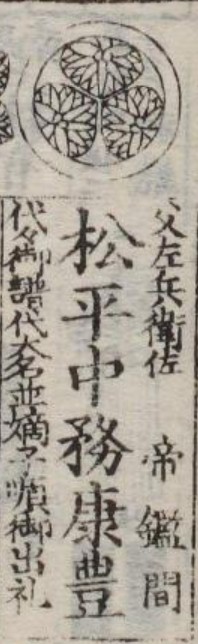 父左兵衛佐 帝鑑間
松平中務康豊
代々御譜代大名並嫡子順御出礼